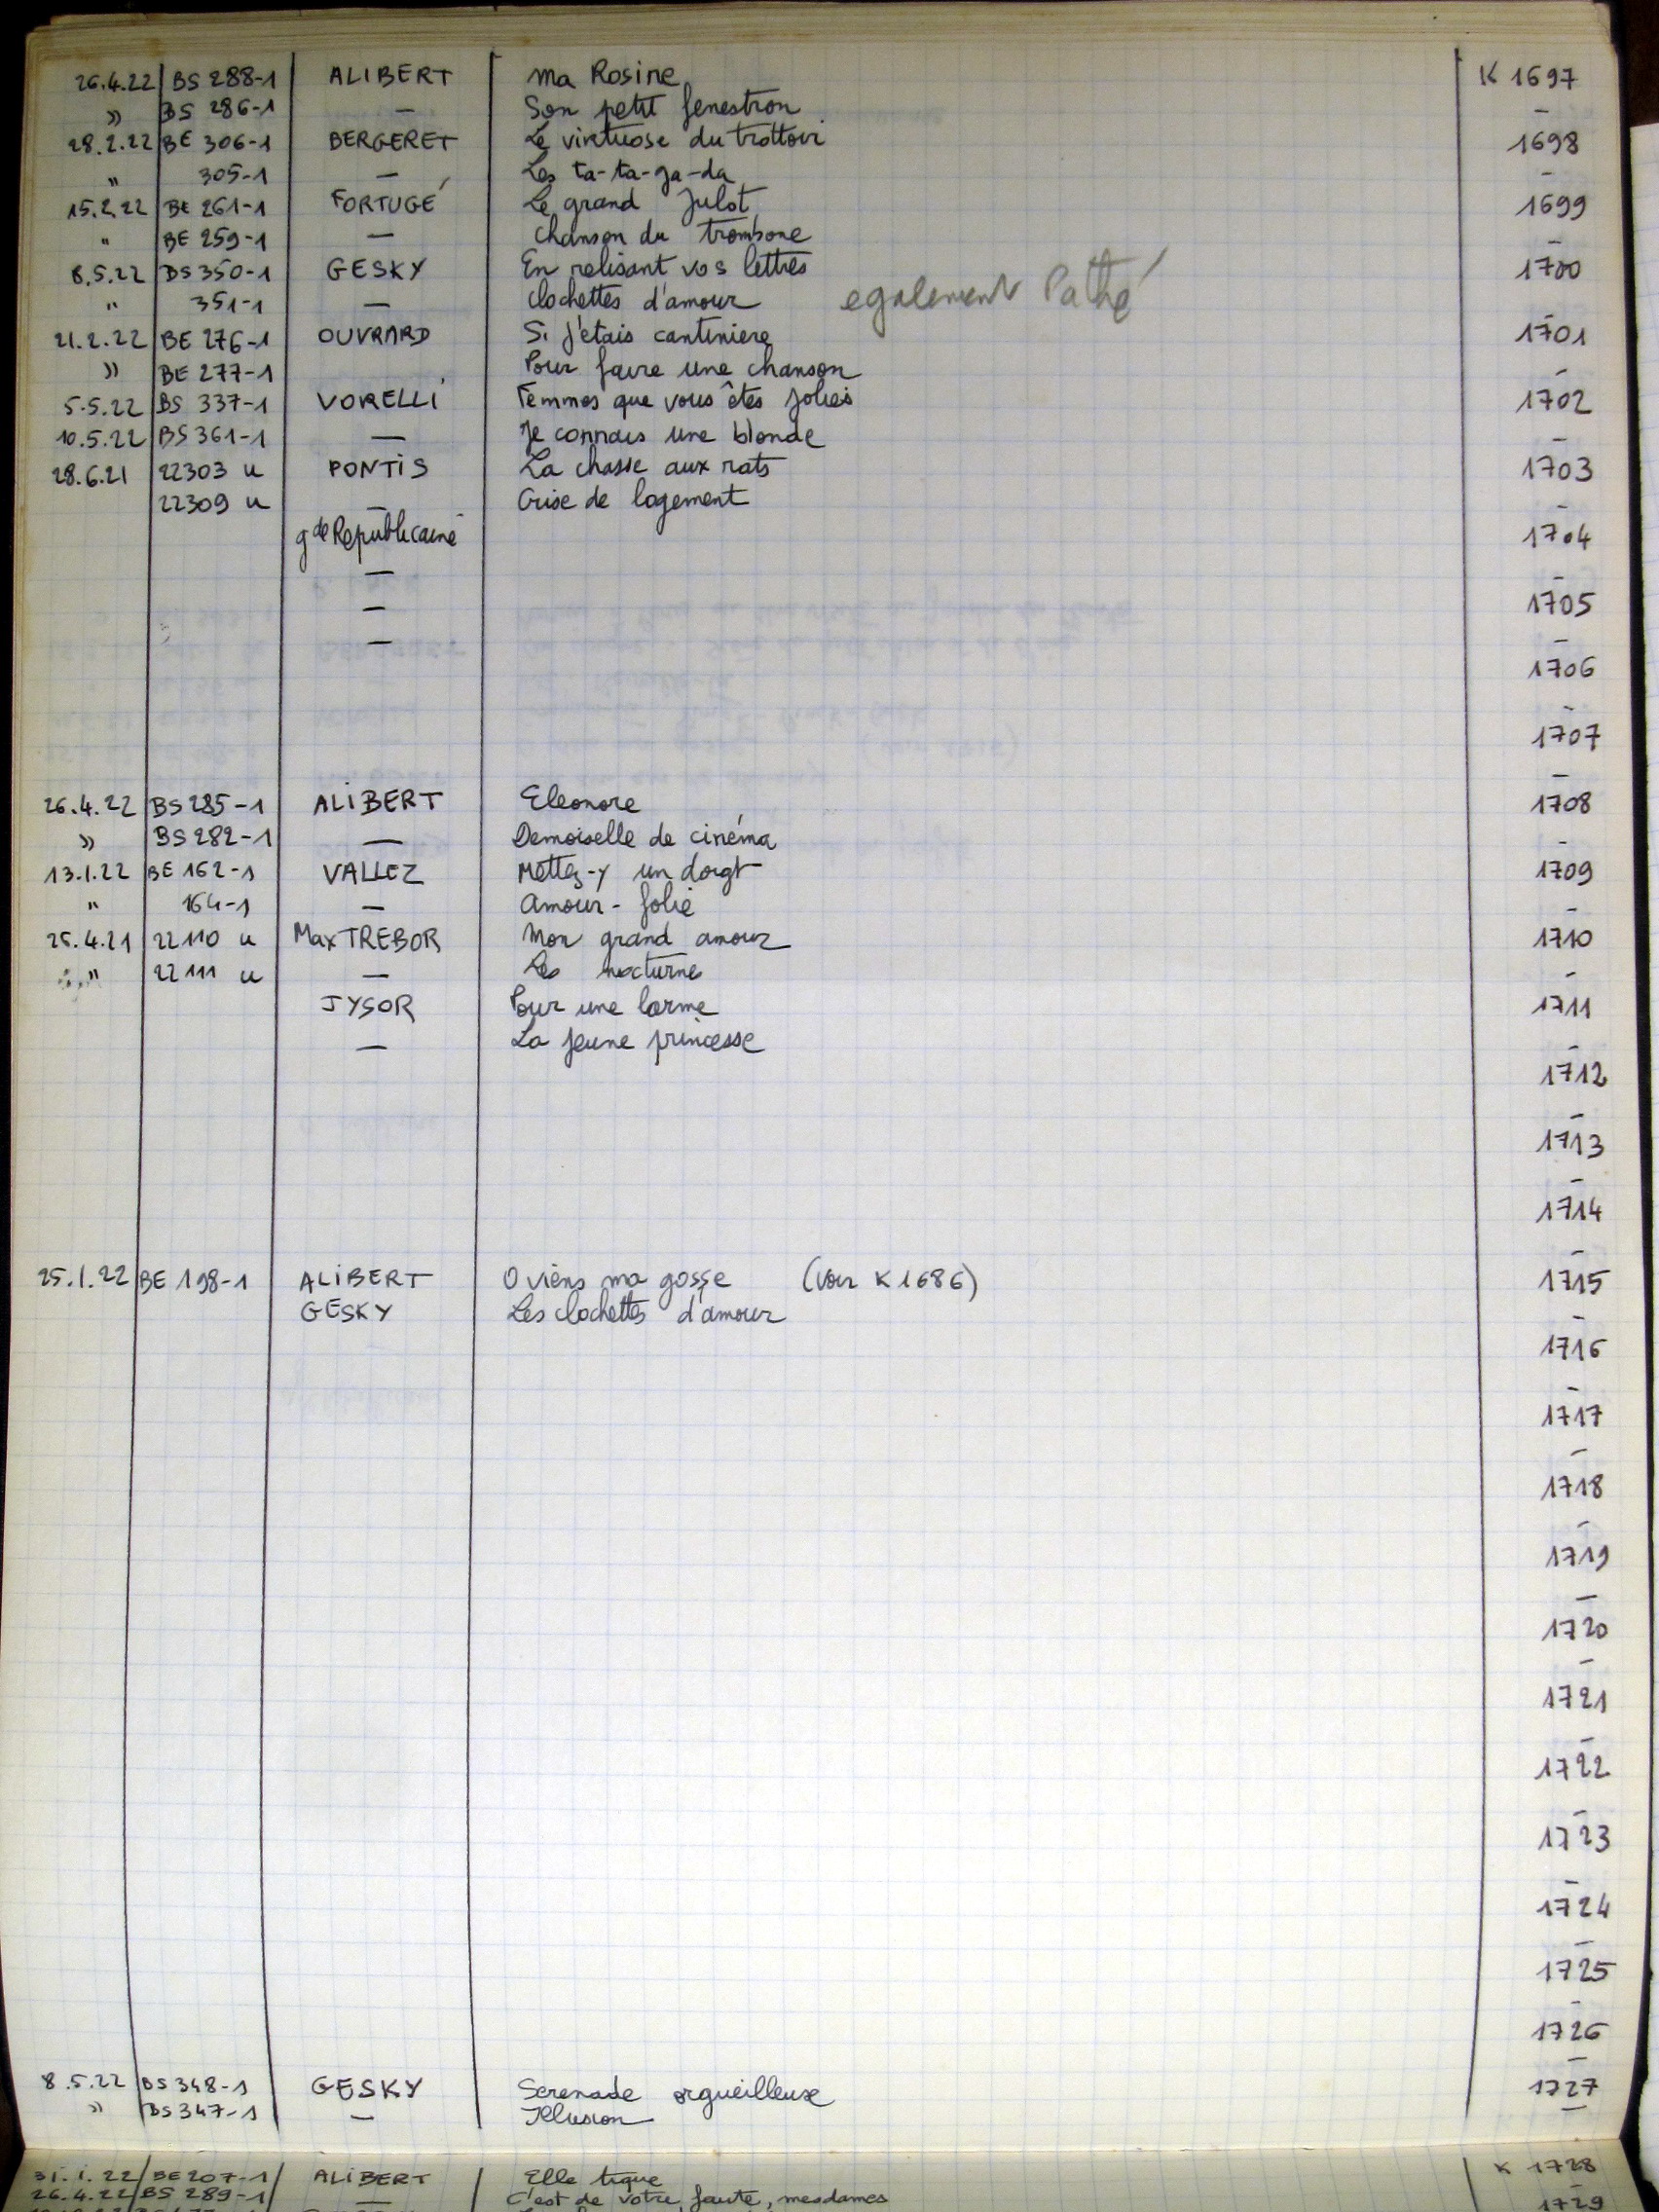 26.4.22 BS 288-1 ALIBERT Ma Rosine K 1697
» BS 286-1 — Son petit fenestron —
28.2.22 BE 306-1 BERGERET Le virtuose du trottoir 1698
" 305-1 — Les ta-ta-ga-da —
15.2.22 BE 261-1 FORTUGÉ Le grand Julot 1699
" BE 259-1 — Chanson du trombone —
8.5.22 BS 350-1 GESKY En relisant vos lettres 1700
" 351-1 — Clochettes d'amour egalement Pathé —
21.2.22 BE 276-1 OUVRARD Si j'étais cantiniere 1701
» BE 277-1 Pour faire une chanson —
5.5.22 BS 337-1 VORELLI Femmes que vous êtes jolies 1702
10.5.22 BS 361-1 — Je connais une blonde —
28.6.21 22303 u PONTIS La chasse aux rats 1703
22309 u — Crise de logement —
gde Republicaine 1704
— —
— 1705
— —
1706
—
1707
—
26.4.22 BS 285-1 ALIBERT Eleonore 1708
» BS 282-1 — Demoiselle de cinéma —
13.1.22 BE 162-1 VALLEZ Mettez-y un doigt 1709
" 164-1 — Amour-folie —
25.4.21 22110 u Max TREBOR Mon grand amour 1710
" 22111 u — Les nocturnes —
JYSOR Pour une larme 1711
— La jeune princesse —
1712
—
1713
—
1714
—
25.1.22 BE 198-1 ALIBERT O viens ma gosse (voir K 1686) 1715
GESKY Les clochettes d'amour —
1716
—
1717
—
1718
—
1719
—
1720
—
1721
—
1722
—
1723
—
1724
—
1725
—
1726
—
8.5.22 BS 348-1 GESKY Serenade orgueilleuse 1727
» BS 347-1 — Illusion —
31.1.22 BE 207-1 ALIBERT Elle tique K 1728
26.4.22 BS 289-1 — C'est de votre faute, mesdames
1729